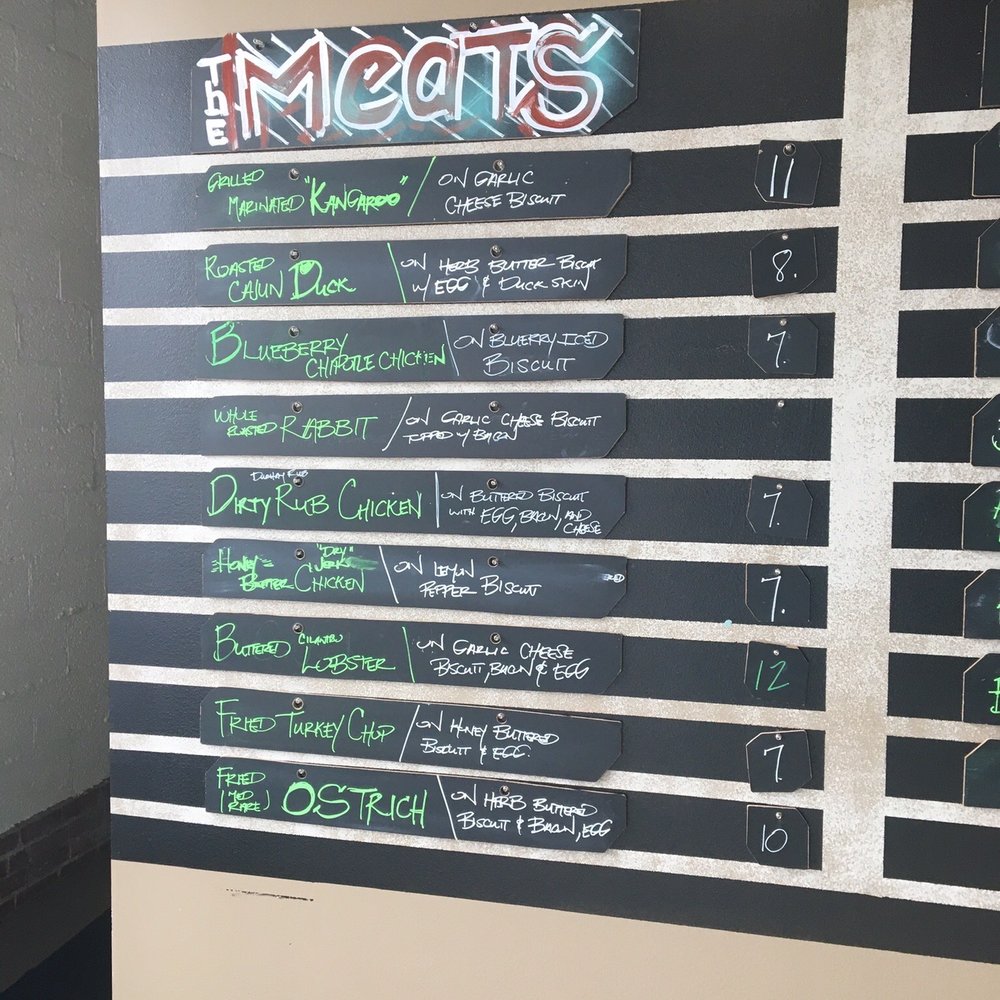 THE MEATS
GRILLED
MARINATED "KANGAROO" / ON GARLIC
CHEESE BISCUIT
11
ROASTED
CAJUN DUCK / ON HERB BUTTER BISCUIT
W/ EGG & DUCK SKIN
8.
BLUEBERRY
CHIPOTLE CHICKEN \ ON BLUERRY ICED
BISCUIT
7.
WHOLE
ROASTED RABBIT / ON GARLIC CHEESE BISCUIT
TOPPED W/ BACON
DIRTY RUB CHICKEN | ON BUTTERED BISCUIT
WITH EGG, BACON, AND
CHEESE
7.
HONEY "DRY" JERK
BUTTER CHICKEN \ ON LEMON
PEPPER BISCUIT
7.
BUTTERED CILANTRO
LOBSTER | ON GARLIC CHEESE
BISCUIT, BACON & EGG
12
FRIED TURKEY CHOP / ON HONEY BUTTERED
BISCUIT & EGG.
7.
FRIED
(MED
RARE) OSTRICH \ ON HERB BUTTERED
BISCUIT & BACON, EGG
10